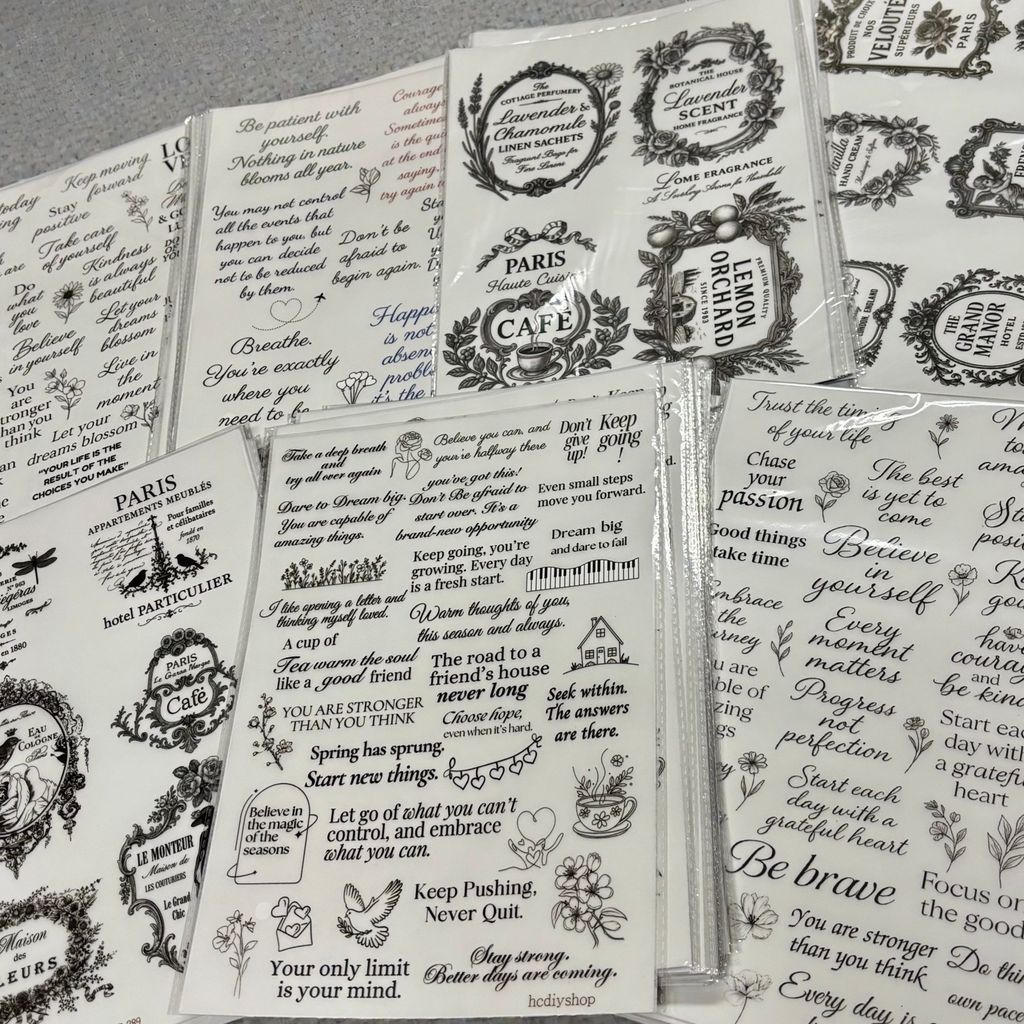 today
Keep moving
forward
Stay
positive
Take care
of yourself
Do
what
you
love
Kindness
is always
beautiful
Believe
in yourself
Let your
dreams
blossom
You
are
stronger
than you
think
Live in
the
moment
Let your
dreams blossom
"YOUR LIFE IS THE
RESULT OF THE
CHOICES YOU MAKE"
Be patient with
yourself.
Nothing in nature
blooms all year.
You may not control
all the events that
happen to you, but
you can decide
not to be reduced
by them.
Don't be
afraid to
begin again.
Breathe.
You're exactly
where you
need to be
Courage
always
Sometimes
is the
at the end
saying,
try again
is not
The
COTTAGE PERFUMERY
Lavender &
Chamomile
LINEN SACHETS
Fragrant Bags for
Fine Linens
THE
BOTANICAL HOUSE
Lavender
SCENT
HOME FRAGRANCE
LOME FRAGRANCE
PARIS
Haute Cuisine
CAFÉ
PREMIUM QUALITY
LEMON
ORCHARD
SINCE 1983
PRODUIT DE CHOIX
NOS
VELOUTÉ
SUPÉRIEURES
PARIS
Vanilla
HAND CREAM
THE
GRAND
MANOR
HOTEL
PARIS
APPARTEMENTS MEUBLÉS
Pour familles
et célibataires
fondé en
1870
hotel PARTICULIER
N° 963
LIMOGES
en 1880
PARIS
Café
EAU
de
COLOGNE
LE MONTEUR
Maison de
LES COUTURIERS
Le Grand
Chic
Maison
des
Take a deep breath
and
try all over again
Believe you can, and
you're halfway there
Don't
give
up!
Keep
going
!
Dare to Dream big.
You are capable of
amazing things.
you've got this!
Don't Be afraid to
start over. It's a
brand-new opportunity
Even small steps
move you forward.
Keep going, you're
growing. Every day
is a fresh start.
Dream big
and dare to fail
I like opening a letter and
thinking myself loved.
Warm thoughts of you,
this season and always.
A cup of
Tea warm the soul
like a good friend
The road to a
friend's house
never long
YOU ARE STRONGER
THAN YOU THINK
Choose hope,
even when it's hard.
Seek within.
The answers
are there.
Spring has sprung.
Start new things.
Believe in
the magic
of the
seasons
Let go of what you can't
control, and embrace
what you can.
Keep Pushing,
Never Quit.
Your only limit
is your mind.
Stay strong.
Better days are coming.
hcdiyshop
Trust the timing
of your life
Chase
your
passion
The best
is yet to
come
Good things
take time
Believe
in
yourself
Every
moment
matters
have
courage
and
be kind
Progress
not
perfection
Start each
day with
a grateful
heart
Start each
day with a
grateful heart
Be brave
Focus on
the good
You are stronger
than you think
Do
own pace
Every day is